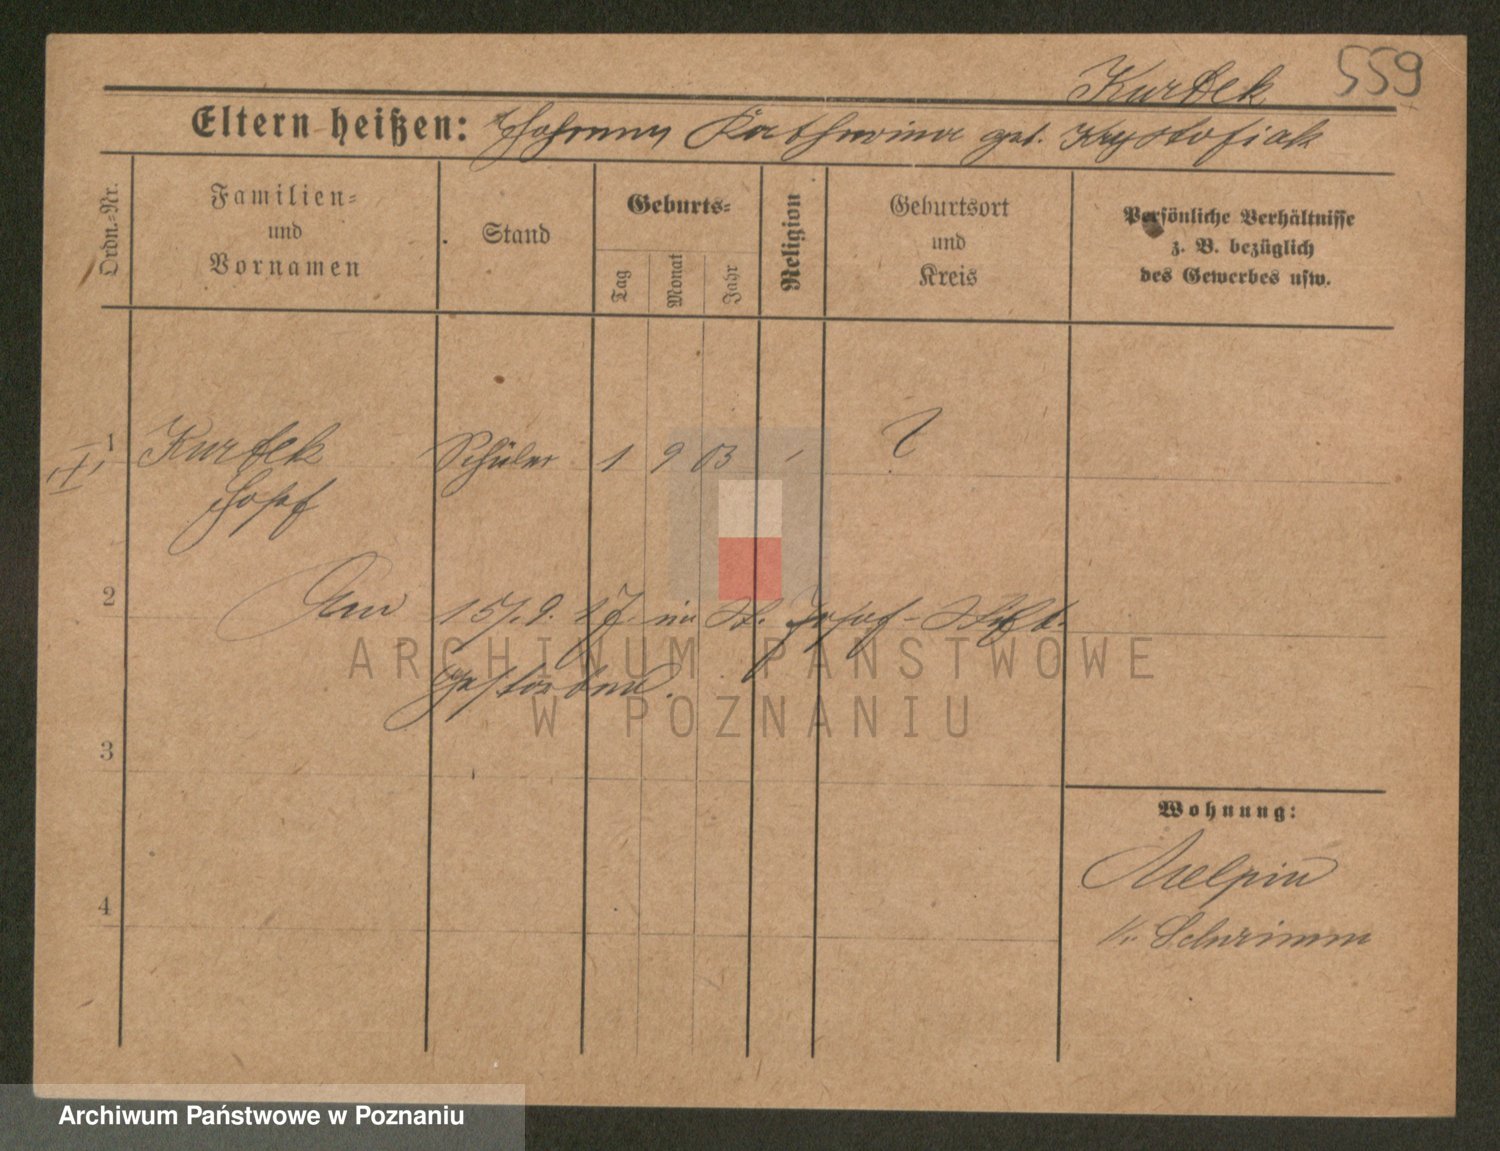 559
Kurdek
Eltern heißen: Johann Katharina geb. Krystofiak
Ordn.-Nr.
Familien-
und
Vornamen
Stand
Geburts-
Tag
Monat
Jahr
Religion
Geburtsort
und
Kreis
Persönliche Verhältnisse
z. B. bezüglich
des Gewerbes usw.
1 Kurdek Schüler 1 9 03
Josef
2
Am 15/.9. 17. im St. Josef-Stift.
gestorben.
3
4
Wohnung:
Melpin
Kr. Schrimm
ARCHIWUM PAŃSTWOWE
W POZNANIU
Archiwum Państwowe w Poznaniu